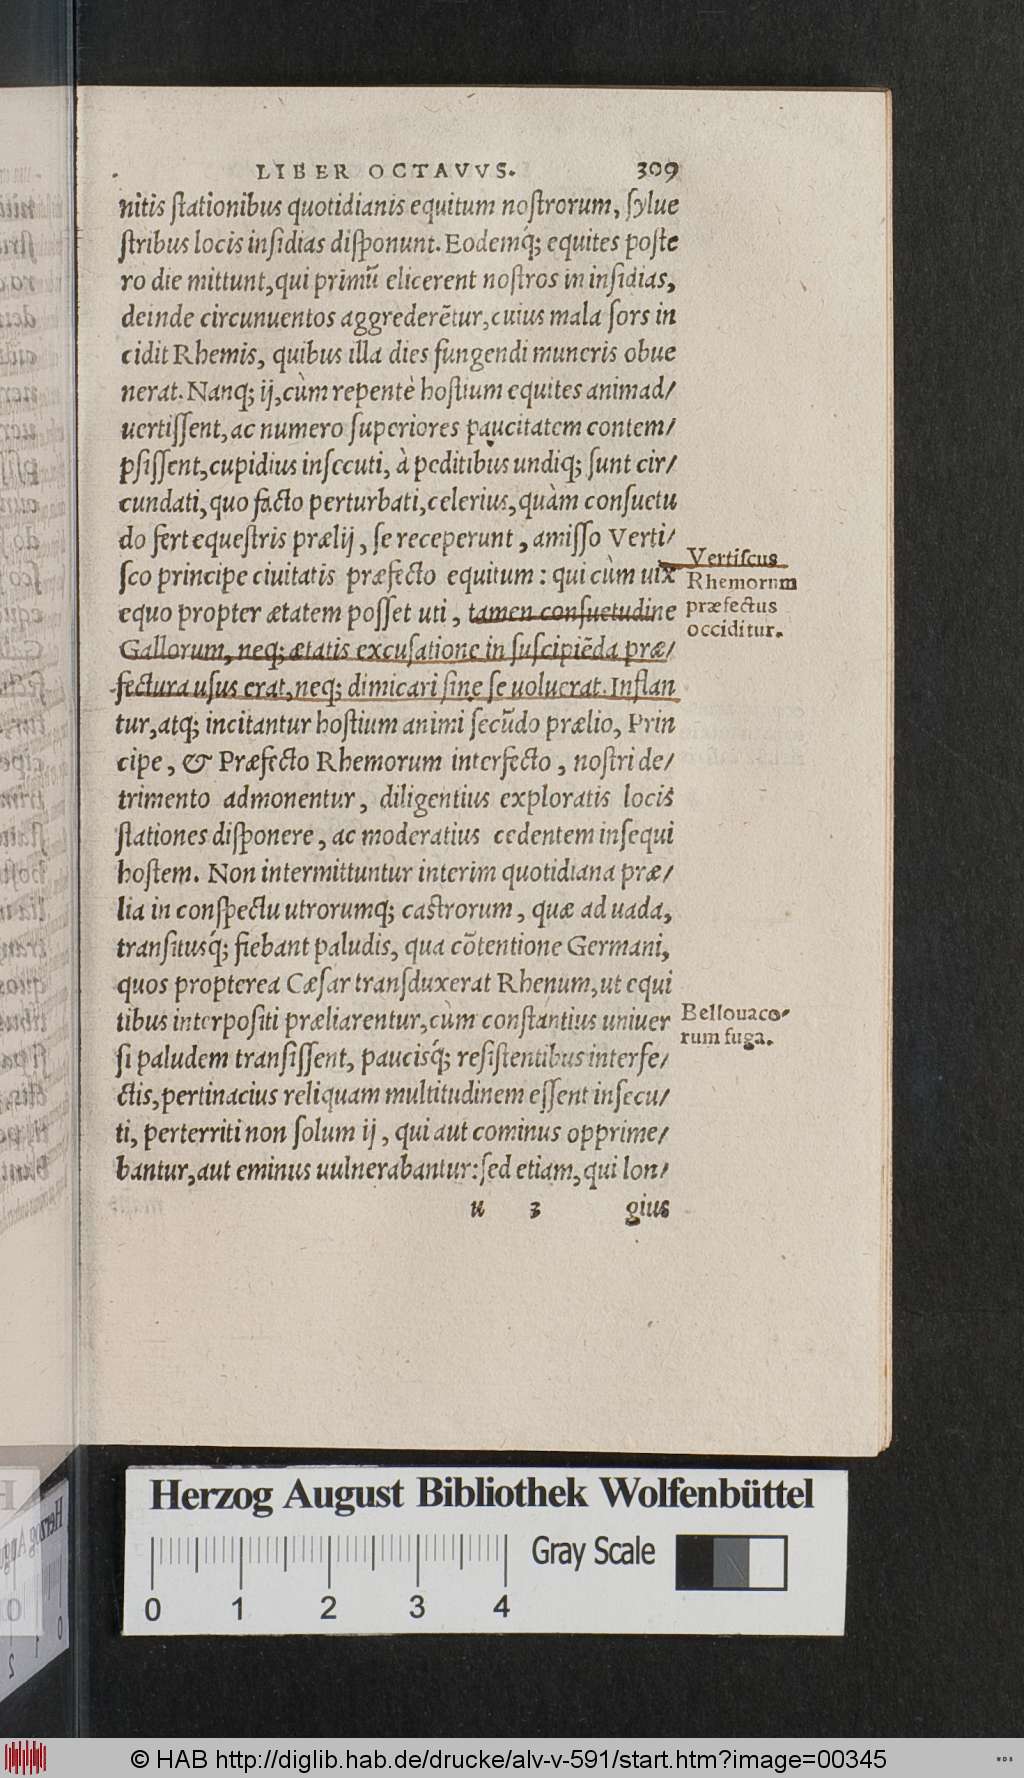 LIBER OCTAVVS. 309
nitis ſtationibus quotidianis equitum noſtrorum, ſylue
ſtribus locis inſidias diſponunt. Eodemq́; equites poſte
ro die mittunt, qui primũ elicerent noſtros in inſidias,
deinde circunuentos aggrederẽtur, cuius mala ſors in
cidit Rhemis, quibus illa dies fungendi muneris obue
nerat. Nanq; ij, cùm repentè hoſtium equites animad/
uertiſſent, ac numero ſuperiores paucitatem contem/
pſiſſent, cupidius inſecuti, à peditibus undiq; ſunt cir/
cundati, quo facto perturbati, celerius, quàm conſuetu
do fert equeſtris prælij, ſe receperunt, amiſſo Verti/
ſco principe ciuitatis præfecto equitum: qui cùm uix
equo propter ætatem poſſet uti, tamen conſuetudine
Gallorum, neq; ætatis excuſatione in ſuſcipiẽda præ/
fectura uſus erat, neq; dimicari ſine ſe uoluerat. Inflan
tur, atq; incitantur hoſtium animi ſecũdo prælio, Prin
cipe, & Præfecto Rhemorum interfecto, noſtri de/
trimento admonentur, diligentius exploratis locis
ſtationes diſponere, ac moderatius cedentem inſequi
hoſtem. Non intermittuntur interim quotidiana præ/
lia in conſpectu utrorumq; caſtrorum, quæ ad uada,
tranſitusq́; fiebant paludis, qua cõtentione Germani,
quos propterea Cæſar tranſduxerat Rhenum, ut equi
tibus interpoſiti præliarentur, cùm conſtantius uniuer
ſi paludem tranſiſſent, paucisq́; reſiſtentibus interfe/
ctis, pertinacius reliquam multitudinem eſſent inſecu/
ti, perterriti non ſolum ij, qui aut cominus opprime/
bantur, aut eminus uulnerabantur: ſed etiam, qui lon/
u 3 gius
Vertiſcus
Rhemorum
præfectus
occiditur.
Bellouaco-
rum fuga.
Herzog August Bibliothek Wolfenbüttel
Gray Scale
0 1 2 3 4
© HAB http://diglib.hab.de/drucke/alv-v-591/start.htm?image=00345